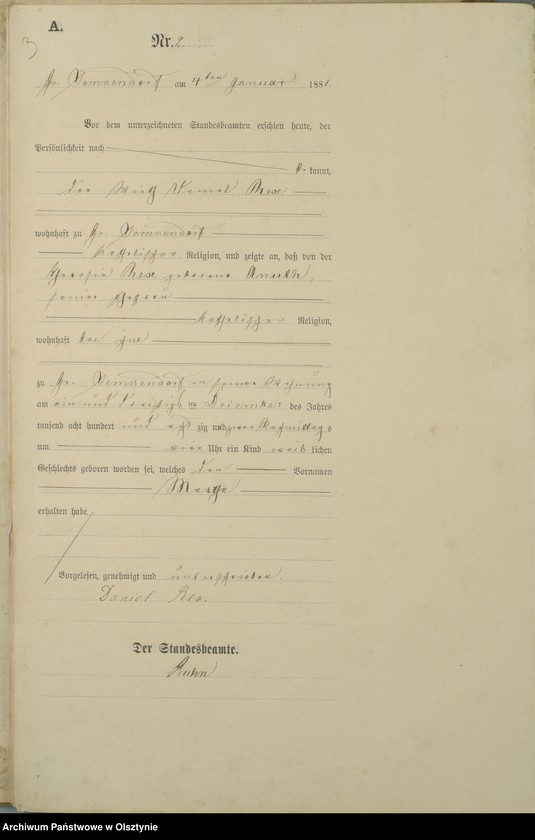 A.
3
Nr. 2.
Gr. Bertung am 4ten Januar 1881.
Vor dem unterzeichneten Standesbeamten erschien heute, der
Persönlichkeit nach
be kannt,
der Wirth Daniel
wohnhaft zu Gr.
katholischer Religion, und zeigte an, daß von der
geborene
seiner Ehefrau
katholischer Religion,
wohnhaft bei ihm
zu Gr. in seiner Wohnung
am ein und dreißigsten Dezember des Jahres
tausend acht hundert und acht zig und Nachmittags
um vier Uhr ein Kind weib lichen
Geschlechts geboren worden sei, welches den Vornamen
Martha
erhalten habe.
Vorgelesen, genehmigt und unterschrieben.
Daniel
Der Standesbeamte.
Archiwum Państwowe w Olsztynie